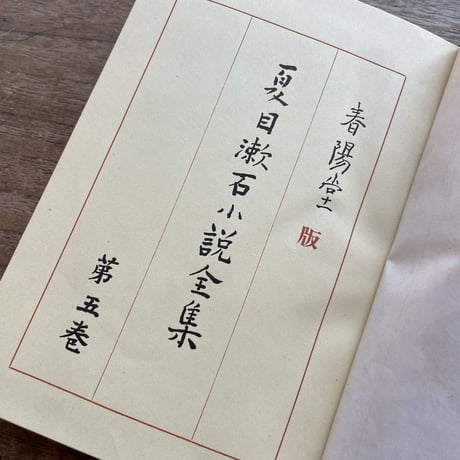 春陽堂版
夏目漱石小説全集
第五巻